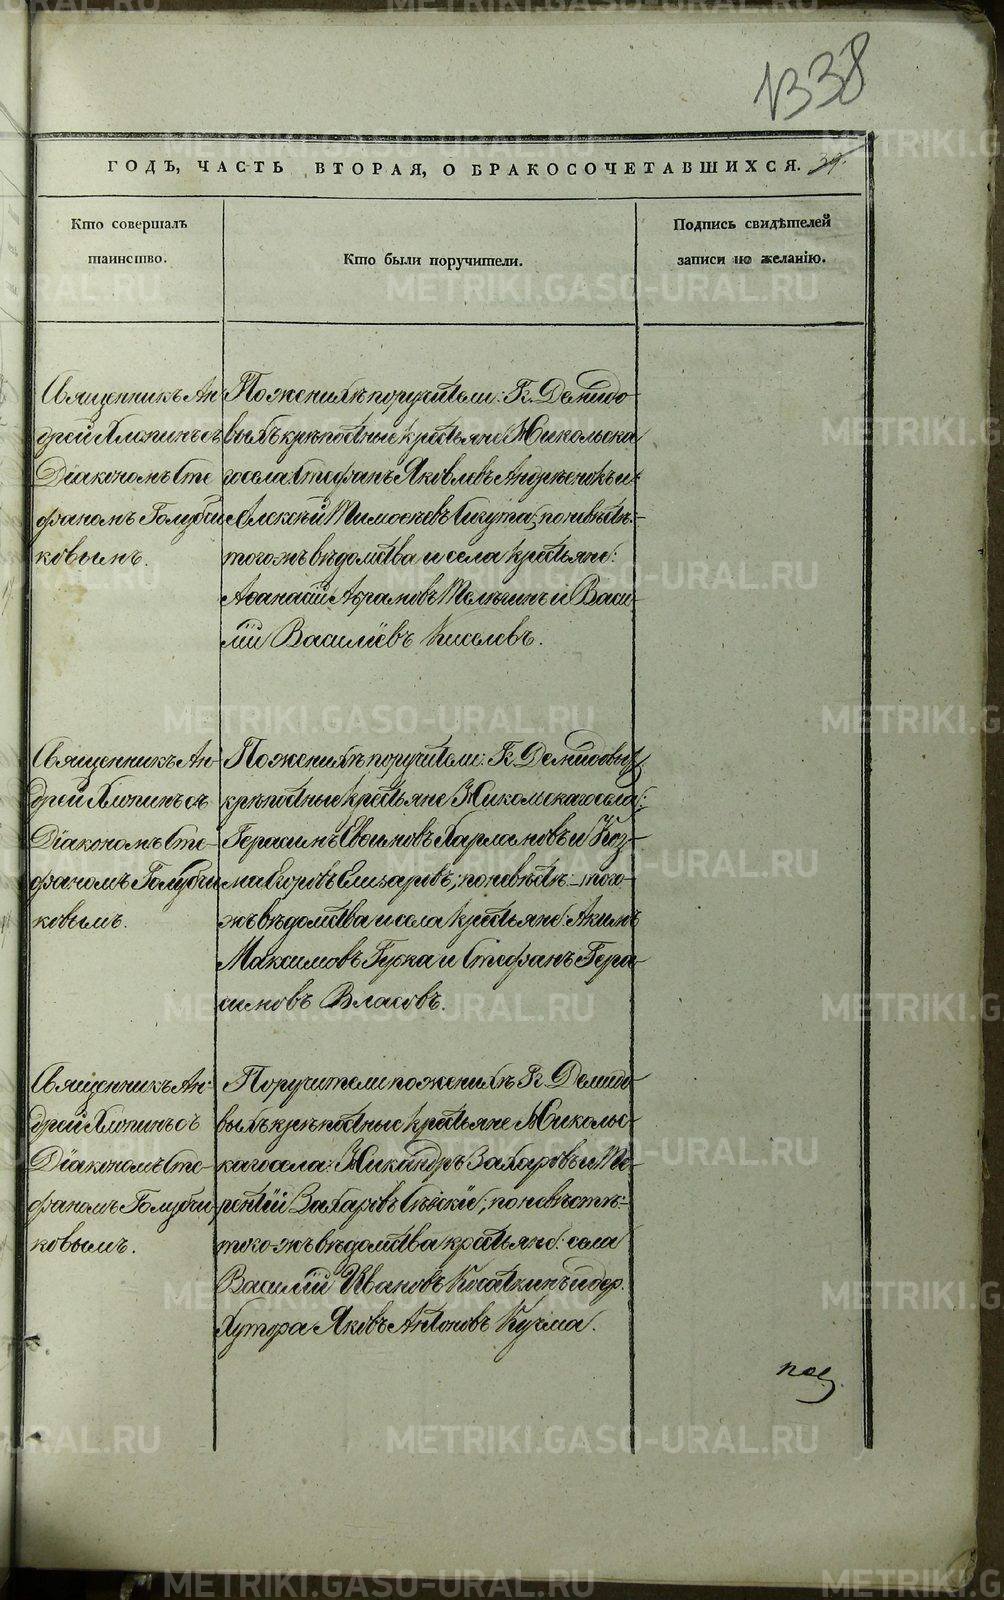 1338
ГОДЪ, ЧАСТЬ ВТОРАЯ, О БРАКОСОЧЕТАВШИХСЯ. 37.
Кто совершалъ
таинство.
Кто были поручители.
Подпись свидѣтелей
записи по желанію.
Священникъ Ан
дрей Хлопинъ съ
Діакономъ Сте
фаномъ Голубчи
ковымъ.
По женихѣ поручители: Г. Демидо
выхъ крѣпостные крестьяне Никольска
го села Стефанъ Яковлевъ Андрѣенокъ и
Алексѣй Тимоѳеевъ Сигута; по невѣстѣ:
того жъ вѣдомства и села крестьяне:
Аѳанасій Абрамовъ Телѣгинъ и Васи
лій Василіевъ Киселевъ.
Священникъ Ан-
дрей Хлопинъ съ
Діакономъ Сте-
фаномъ Голубчи
ковымъ.
По женихѣ поручители: Г. Демидовыхъ
крѣпостные крестьяне Никольскаго села:
Герасимъ Евѳимовъ Пармановъ и Коз-
ма Егоровъ Елизаровъ; по невѣстѣ: того
жъ вѣдомства и села крестьяне: Акимъ
Максимовъ Гуска и Стефанъ Гера
симовъ Власовъ.
Священникъ Ан-
дрей Хлопинъ съ
Діакономъ Сте-
фаномъ Голубчи
ковымъ.
Поручители по женихѣ Г. Демидо
выхъ крѣпостные крестьяне Никольс-
каго села: Никандръ Захаровъ и Те-
рентій Захаровъ; по невѣстѣ:
того жъ вѣдомства крестьяне: села
Василій Ивановъ Косаткинъ и дер.
Хутора Яковъ Антоновъ Кучма.
METRIKI.GASO-URAL.RU